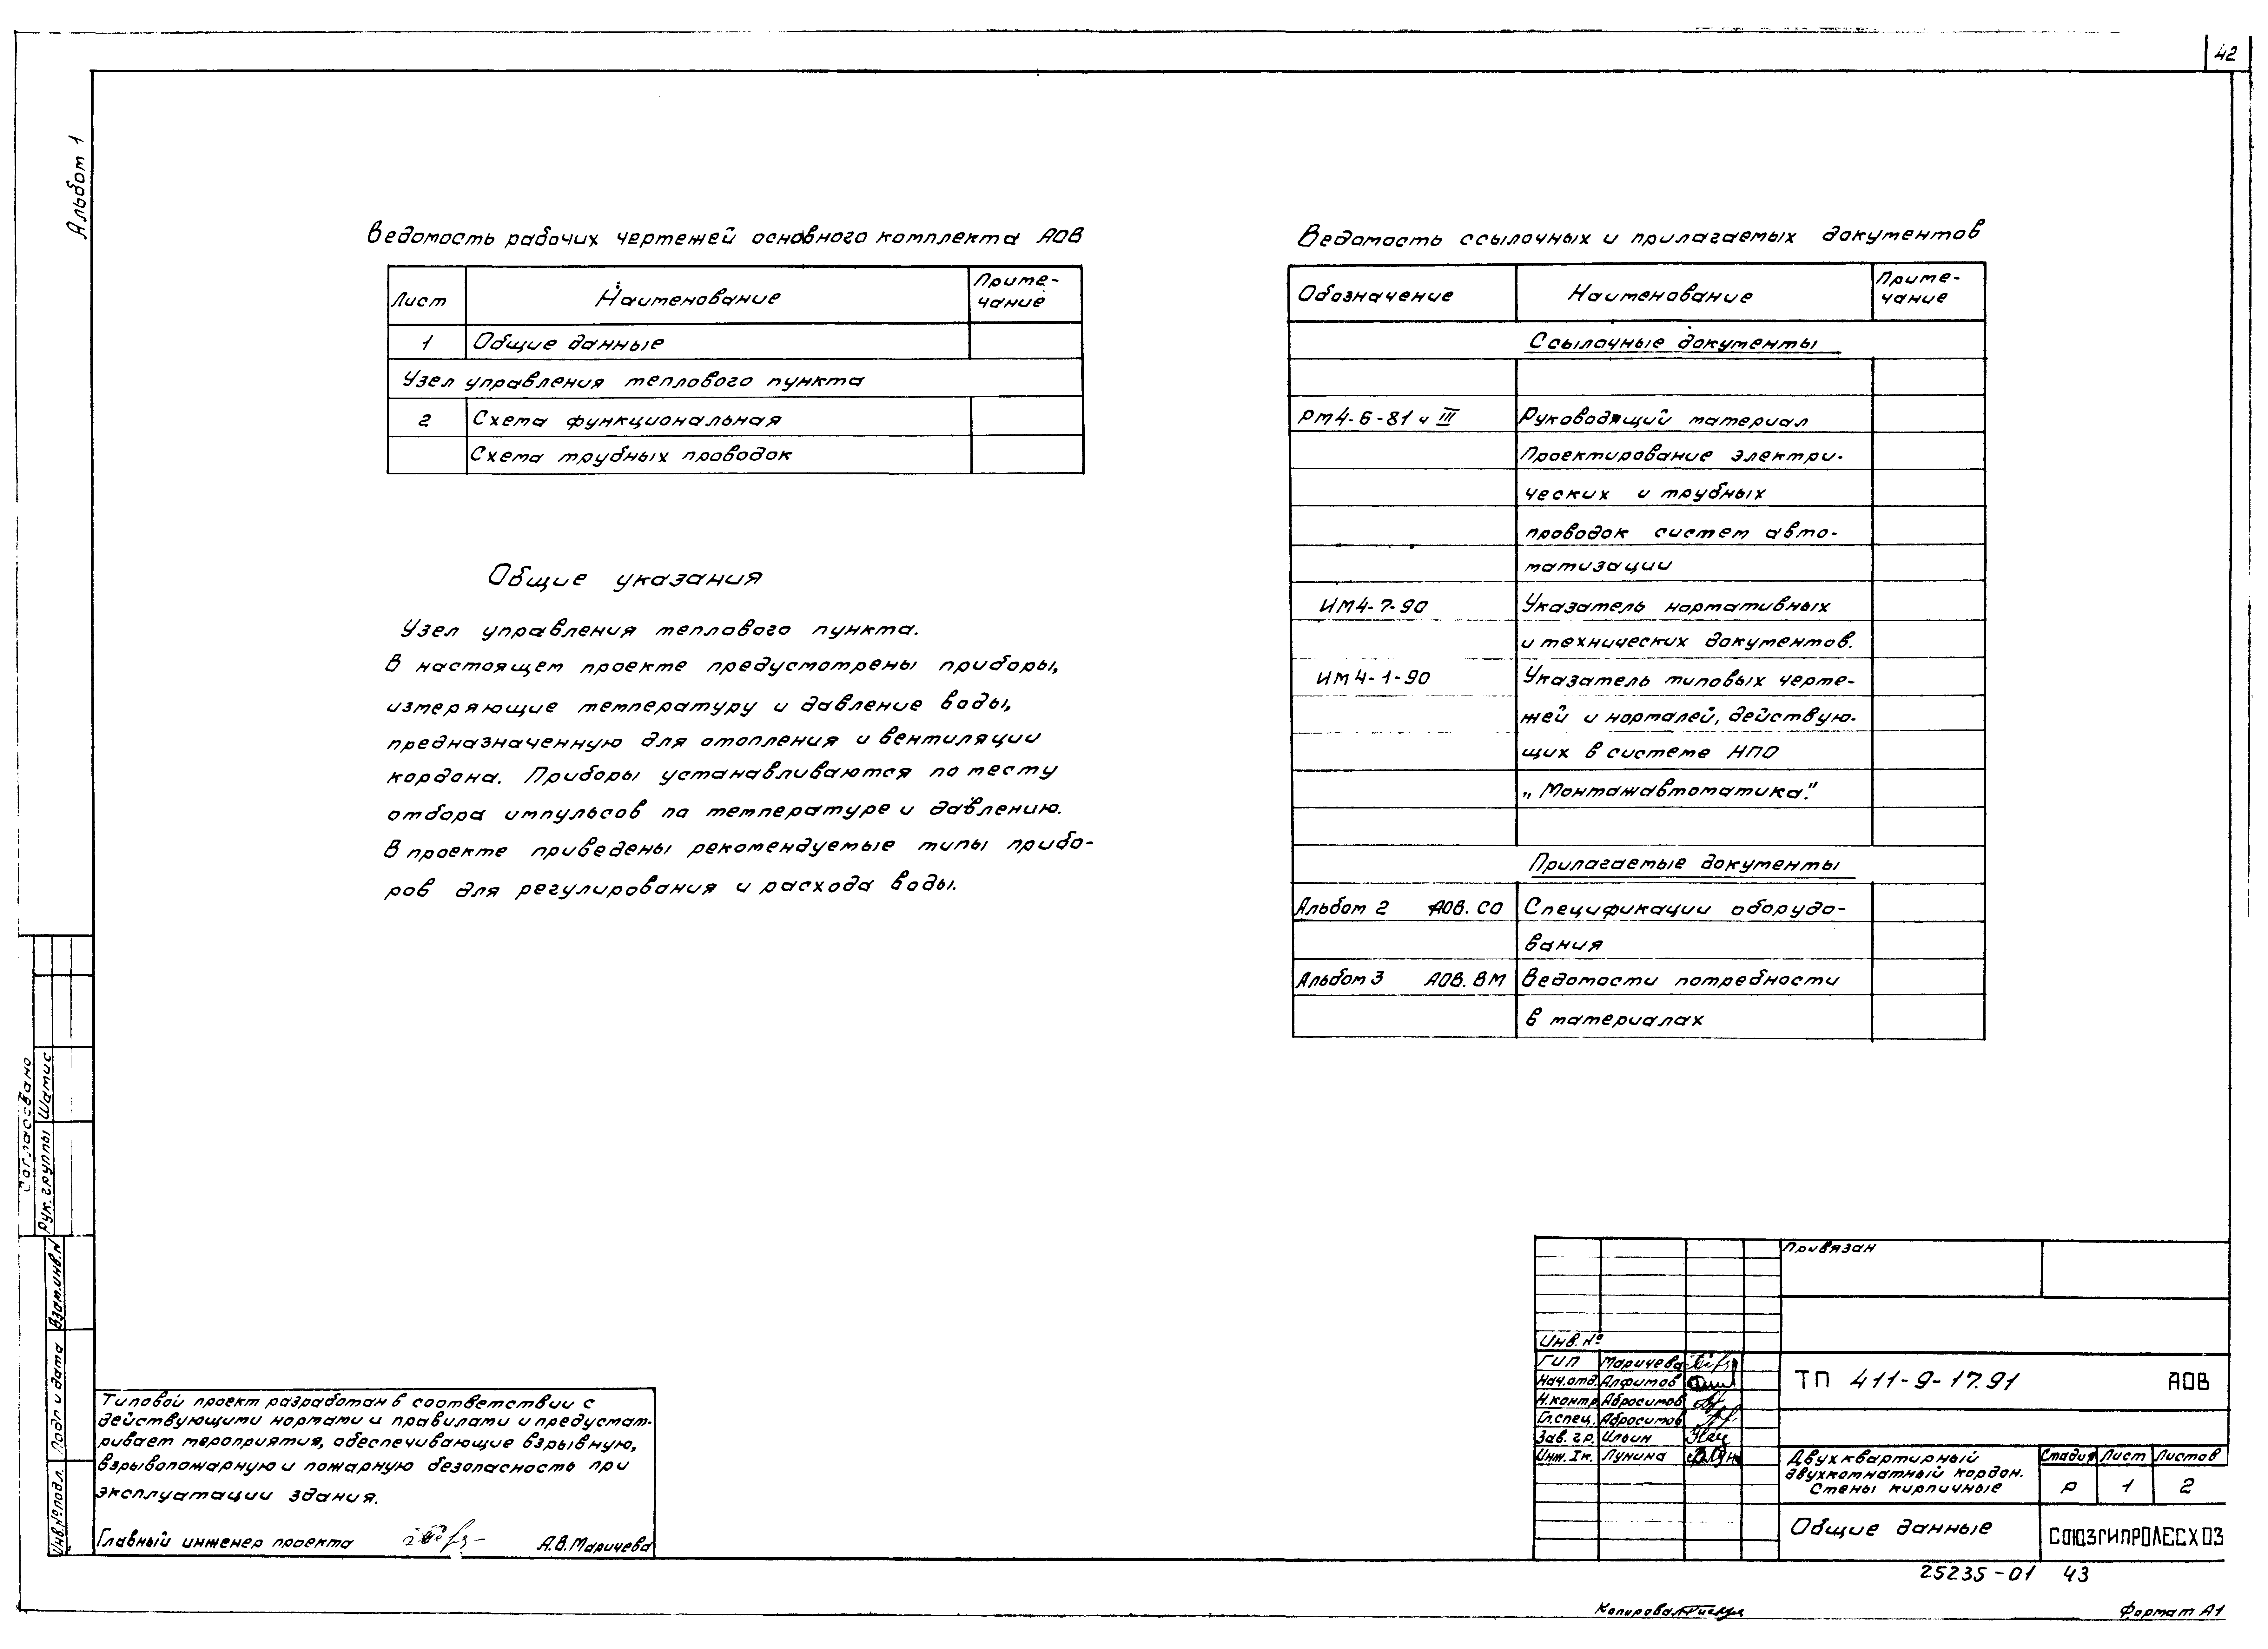 42
Альбом 1
Ведомость рабочих чертежей основного комплекта АОВ
Лист Наименование Приме-
чание
1 Общие данные
Узел управления теплового пункта
2 Схема функциональная
Схема трубных проводок
Общие указания
Узел управления теплового пункта.
В настоящем проекте предусмотрены приборы,
измеряющие температуру и давление воды,
предназначенную для отопления и вентиляции
кордона. Приборы устанавливаются по месту
отбора импульсов по температуре и давлению.
В проекте приведены рекомендуемые типы прибо-
ров для регулирования и расхода воды.
Ведомость ссылочных и прилагаемых документов
Обозначение Наименование Приме-
чание
Ссылочные документы
РМ4-6-81 ч III Руководящий материал
Проектирование электри-
ческих и трубных
проводок систем авто-
матизации
ИМ4-7-90 Указатель нормативных
и технических документов.
ИМ4-1-90 Указатель типовых черте-
жей и нормалей, действую-
щих в системе НПО
„Монтажавтоматика."
Прилагаемые документы
Альбом 2 АОВ.СО Спецификации оборудо-
вания
Альбом 3 АОВ.ВМ Ведомости потребности
в материалах
Согласовано
Рук. группы Шамис
Взам.инв.N
Подп и дата
Инв.№подл.
Типовой проект разработан в соответствии с
действующими нормами и правилами и предусмат-
ривает мероприятия, обеспечивающие взрывную,
взрывопожарную и пожарную безопасность при
эксплуатации здания.
Главный инженер проекта А.В.Маричева
Привязан
Инв.№
ГИП Маричева
Нач.отд. Алфимов
Н.контр. Абросимов
Гл.спец. Абросимов
Зав.гр. Ильин
Инж.Iк. Лунина
ТП 411-9-17.91 АОВ
Двухквартирный
двухкомнатный кордон.
Стены кирпичные
Стадия Лист Листов
Р 1 2
Общие данные
СОЮЗГИПРОЛЕСХОЗ
25235-01 43
Копировал
Формат А1